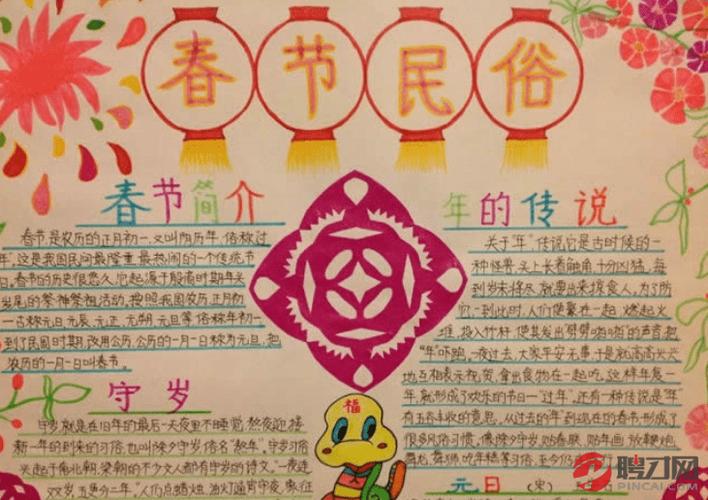 春节民俗
春节简介
春节,是农历的正月初一,又叫阴历年,俗称过
年。这是我国民间最隆重、最热闹的一个传统节
日。春节的历史很悠久,它起源于殷商时期年头
岁尾的祭神祭祖活动。按照我国农历,正月初
一古称元日、元辰、元正、元朔、元旦等,俗称年初一,
到了民国时期,改用公历,公历的一月一日称为元旦,把
农历的一月一日叫春节。
守岁
守岁,就是在旧年的最后一天夜里不睡觉,熬夜迎接
新一年的到来的习俗,也叫除夕守岁,俗名"熬年"。守岁习俗
兴起于南北朝,梁朝的不少文人都有守岁的诗文。"一夜连
双岁,五更分二年。"人们点蜡烛、油灯通宵守夜,象征
福
年的传说
关于"年"传说,它是古时候的
一种怪兽,头上长着触角,十分凶猛。每
到岁末将尽,就要出来掠食人。为了防
它,一到此时,人们便聚在一起,燃起火
堆,投入竹杆,使其发出劈劈啪啪的声音,把
"年"吓跑。一夜过去,大家平安无事,于是就高高兴兴
地互相表示祝贺,拿出食物在一起吃。这样年复一
年,就形成了欢乐的节日一"过年"。还有一种传说是"年"
有五谷丰收的意思。从过去的年到现在的春节,形成了
很多风俗习惯,像除夕守岁、贴春联、贴年画、放鞭炮、
舞龙、舞狮、吃年糕等习俗,至今仍
元日 (宋)
聘才网
PINCAI.COM